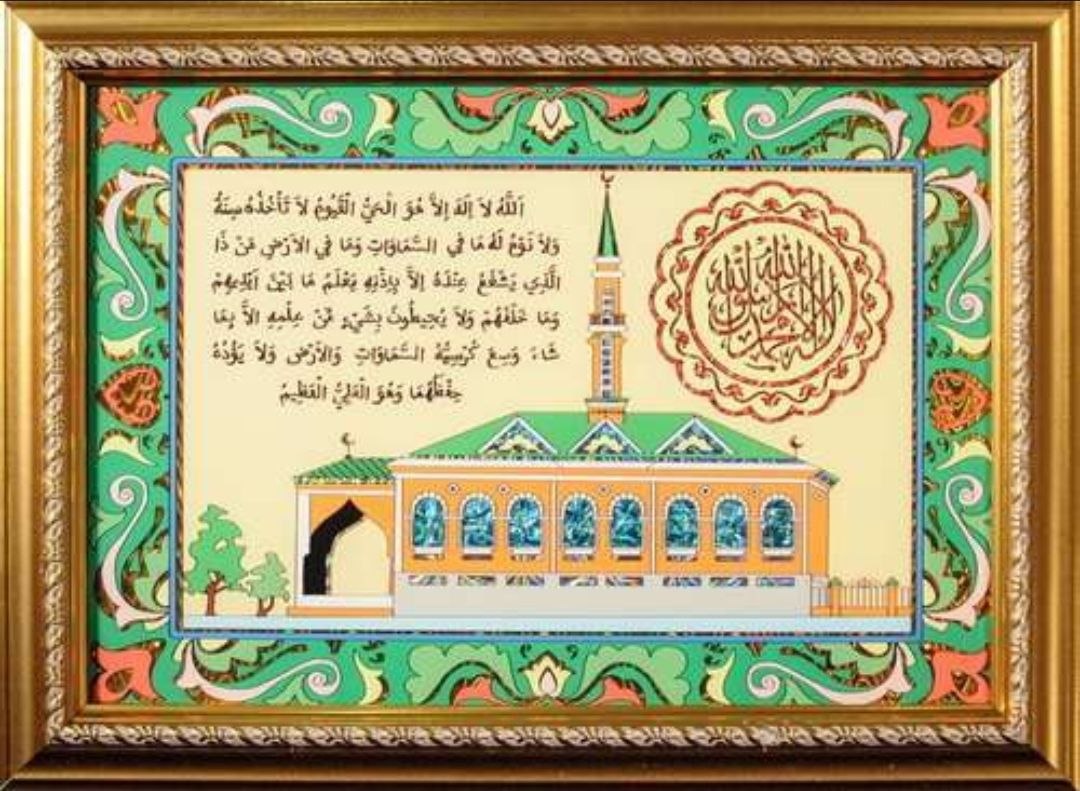 اَللَّهُ لاَ اِلَهَ اِلاَّ هُوَ الْحَيُّ الْقَيُّومُ لاَ تَأْخُذُهُ سِنَةٌ
وَلاَ نَوْمٌ لَهُ مَا فِي السَّمَاوَاتِ وَمَا فِي الاَرْضِ مَنْ ذَا
الَّذِي يَشْفَعُ عِنْدَهُ اِلاَّ بِاِذْنِهِ يَعْلَمُ مَا بَيْنَ اَيْدِيهِمْ
وَمَا خَلْفَهُمْ وَلاَ يُحِيطُونَ بِشَيْءٍ مِّنْ عِلْمِهِ اِلاَّ بِمَا
شَاءَ وَسِعَ كُرْسِيُّهُ السَّمَاوَاتِ وَالاَرْضَ وَلاَ يَؤُدُهُ
حِفْظُهُمَا وَهُوَ الْعَلِيُّ الْعَظِيمُ
لا اله الا الله محمد رسول الله